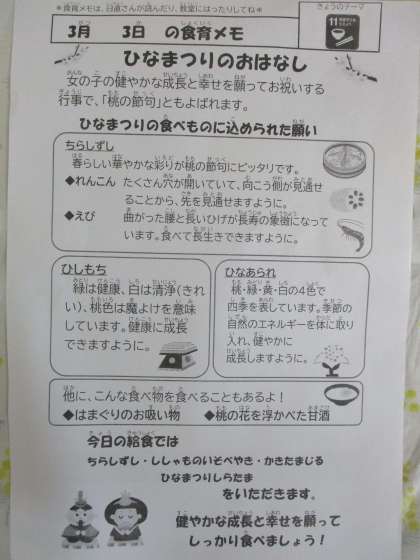 ＊食育メモは、日直さんが読んだり、教室にはったりしてね＊
きょうのテーマ
3月　3日　の食育メモ
11
ひなまつりのおはなし
女の子の健やかな成長と幸せを願ってお祝いする
行事で、「桃の節句」ともよばれます。
ひなまつりの食べものに込められた願い
ちらしずし
春らしい華やかな彩りが桃の節句にピッタリです。
◆れんこん　たくさん穴が開いていて、向こう側が見通せ
ることから、先を見通せますように。
◆えび　曲がった腰と長いひげが長寿の象徴になって
います。食べて長生きできますように。
ひしもち
緑は健康、白は清浄（きれ
い）、桃色は魔よけを意味
しています。健康に成長
できますように。
ひなあられ
桃・緑・黄・白の4色で
四季を表しています。季節の
自然のエネルギーを体に取り
入れ、健やかに
成長しますように。
他に、こんな食べ物を食べることもあるよ！
◆はまぐりのお吸い物　◆桃の花を浮かべた甘酒
今日の給食では
ちらしずし・ししゃものいそべやき・かきたまじる
ひなまつりしらたま
をいただきます。
健やかな成長と幸せを願って
しっかり食べましょう！